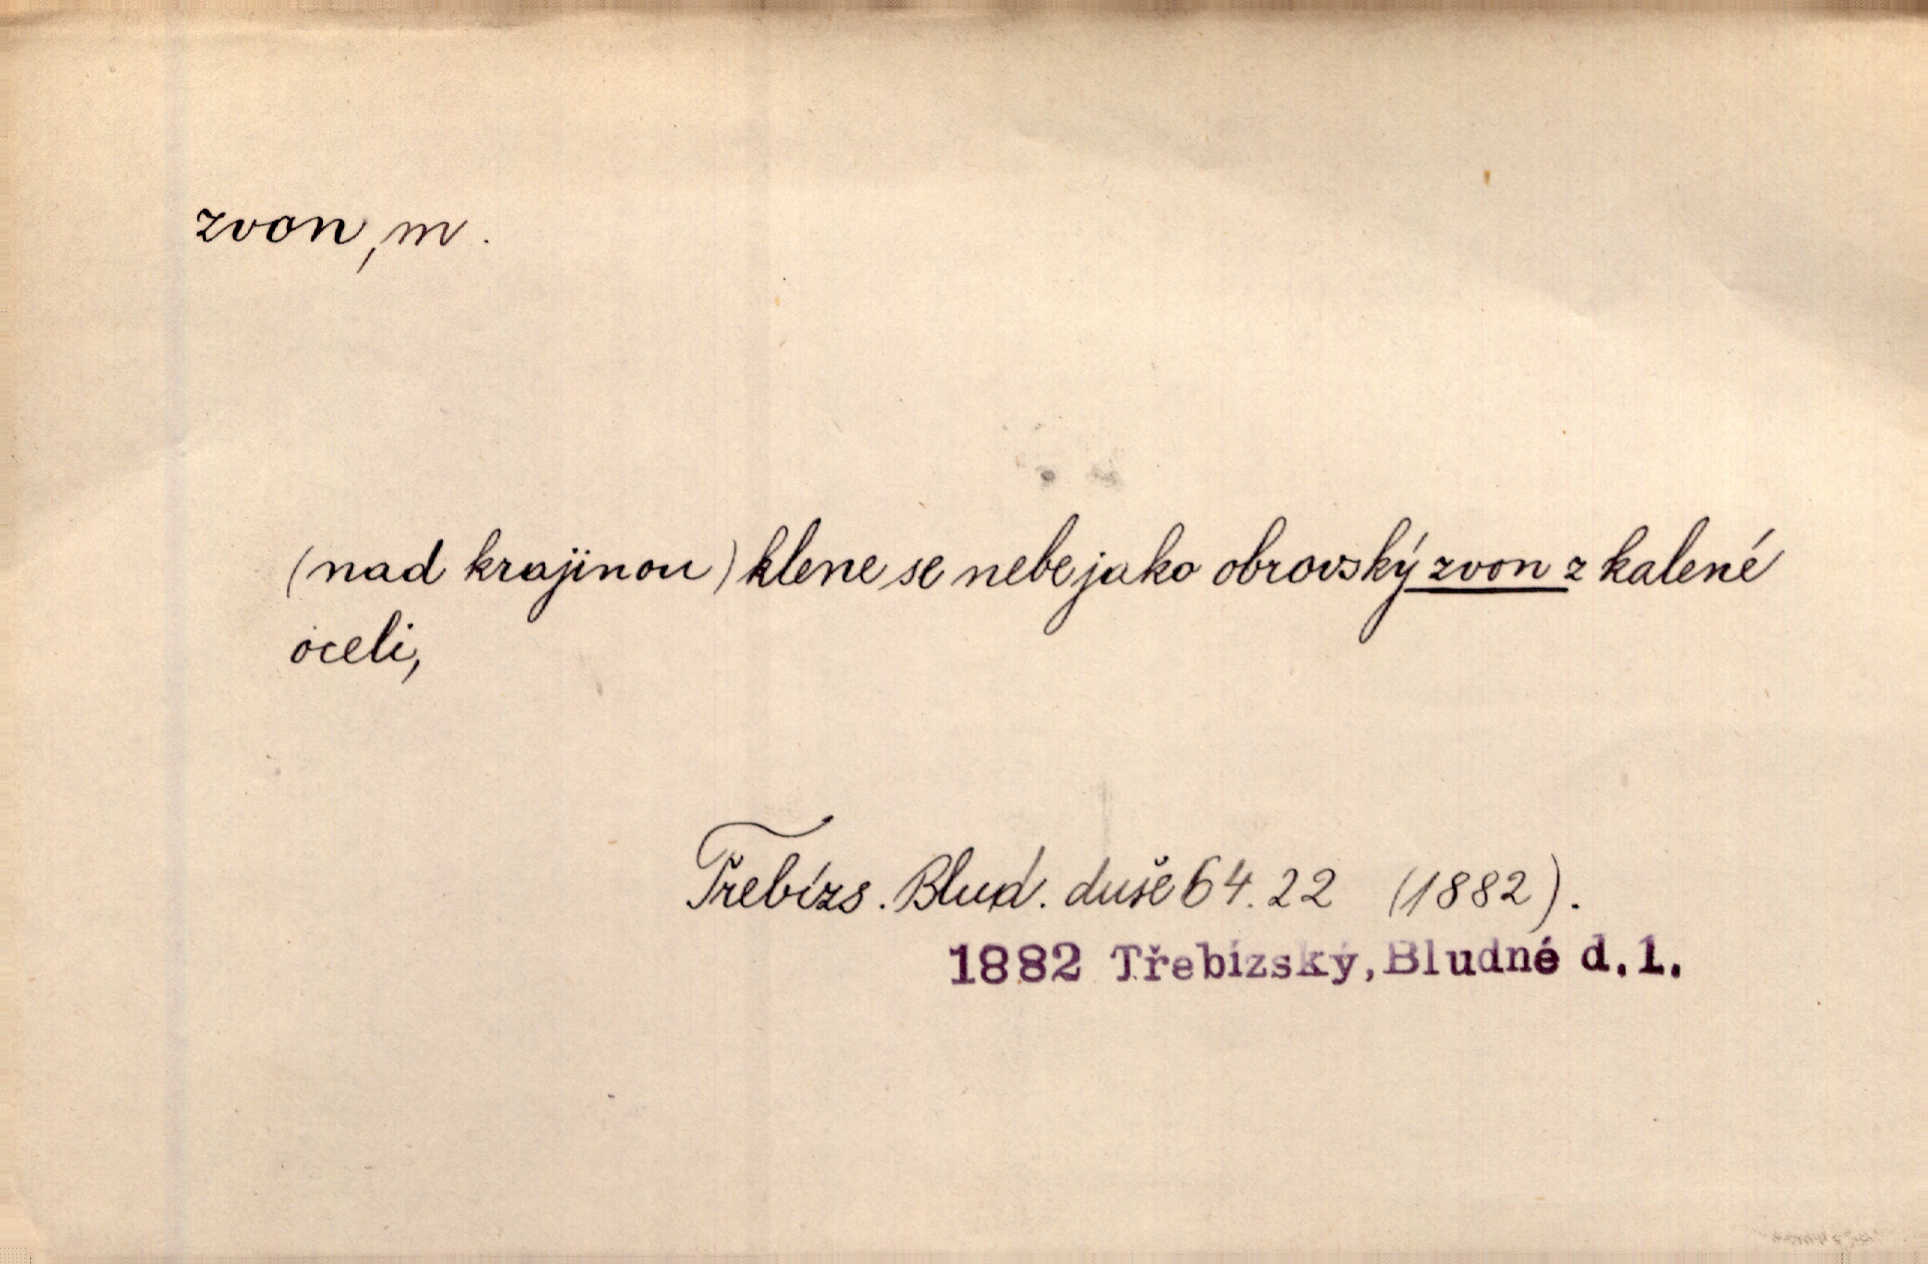 zvon, m.
(nad krajinou) klene se nebe jako obrovský zvon z kalené
oceli,
Třebízs. Blud. duše 64.22 (1882).
1882 Třebízský, Bludné d.1.